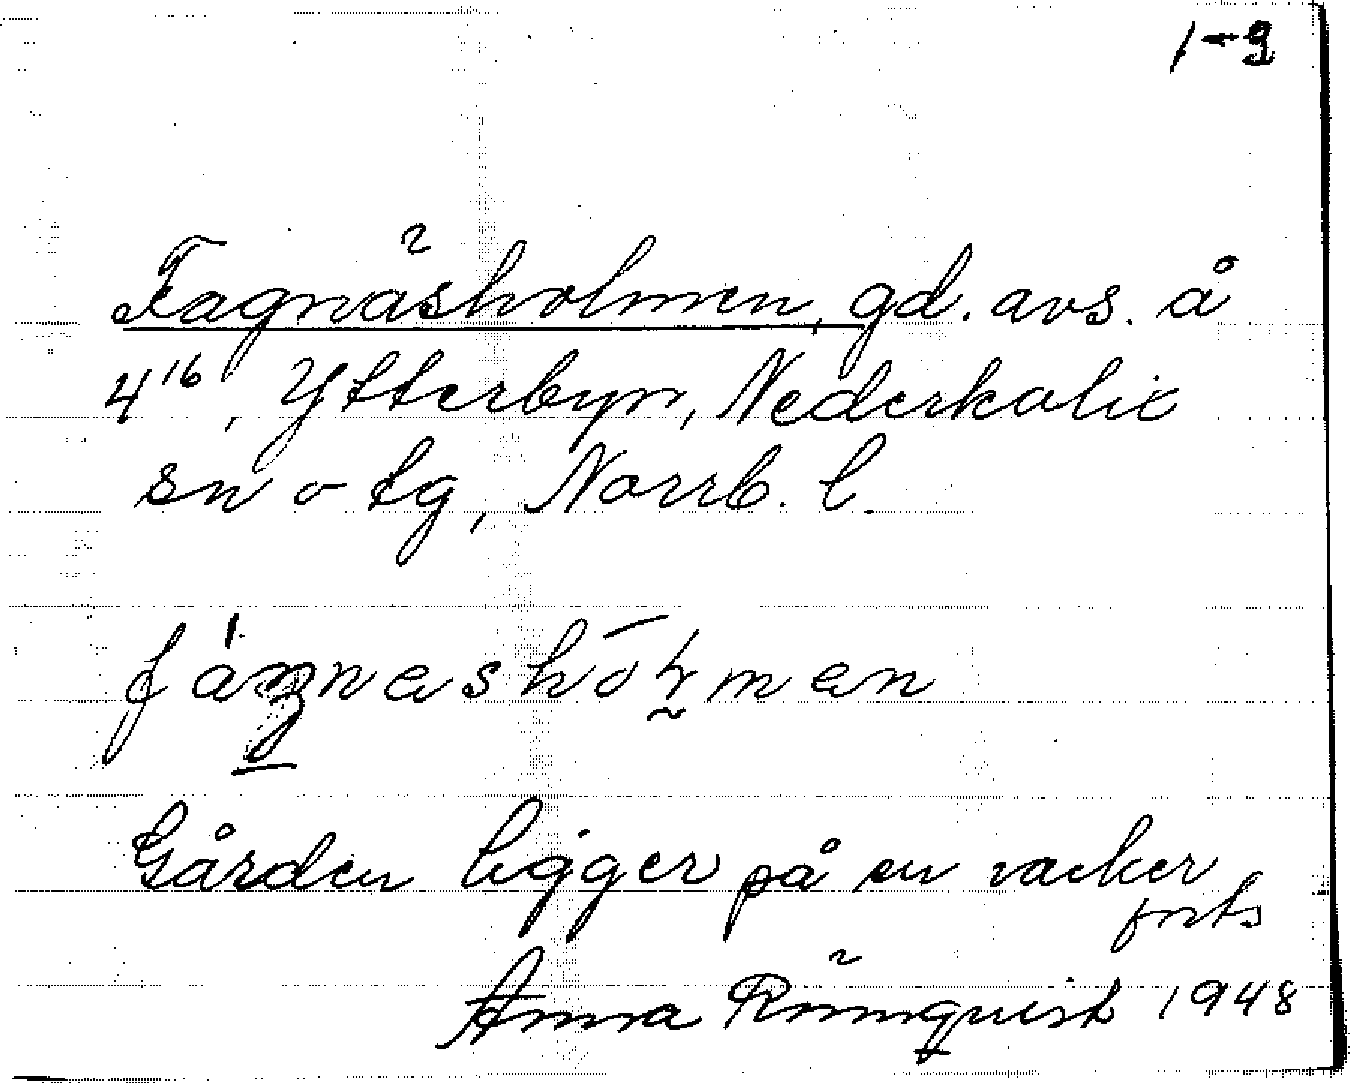 1-2
Fagnäsholmen, gd. avs. å
4¹⁶, Ytterbyn, Nederkalix
sn o tg, Norrb. l.
Gården ligger på en vacker
forts
Anna Rönnquist 1948